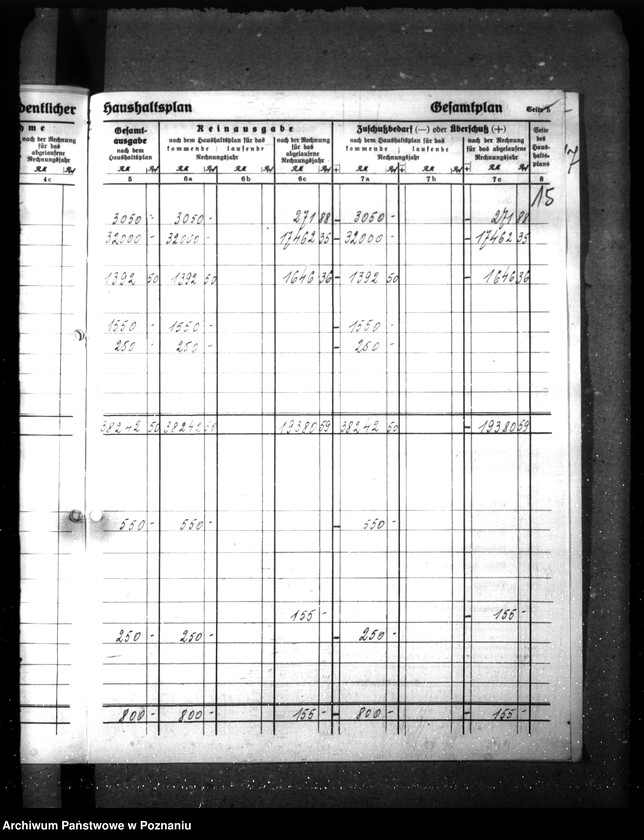 dentlicher Haushaltsplan Gesamtplan Seite 5
7
hme Gesamt- Reinausgabe Zuschußbedarf (—) oder Überschuß (+) Seite
nach der Rechnung ausgabe nach dem Haushaltsplan für das nach der Rechnung nach dem Haushaltsplan für das nach der Rechnung des
für das nach dem kommende laufende für das kommende laufende für das abgelaufene Haus-
abgelaufene Haushaltsplan Rechnungsjahr abgelaufene Rechnungsjahr Rechnungsjahr halts-
Rechnungsjahr Rechnungsjahr plans
RM Rpf RM Rpf RM Rpf RM Rpf RM Rpf + RM Rpf + RM Rpf + RM Rpf
4c 5 6a 6b 6c 7a 7b 7c 8
15
3050 - 3050 - 271 88 - 3050 - - 271 88
32000 - 32000 - 17462 35 - 32000 - - 17462 35
1392 50 1392 50 1646 36 - 1392 50 - 1646 36
1550 - 1550 - - 1550 -
250 - 250 - - 250 -
38242 50 38242 50 19380 59 - 38242 50 - 19380 59
550 - 550 - - 550 -
155 - - 155 -
250 - 250 - - 250 -
800 - 800 - 155 - - 800 - - 155 -
Archiwum Państwowe w Poznaniu